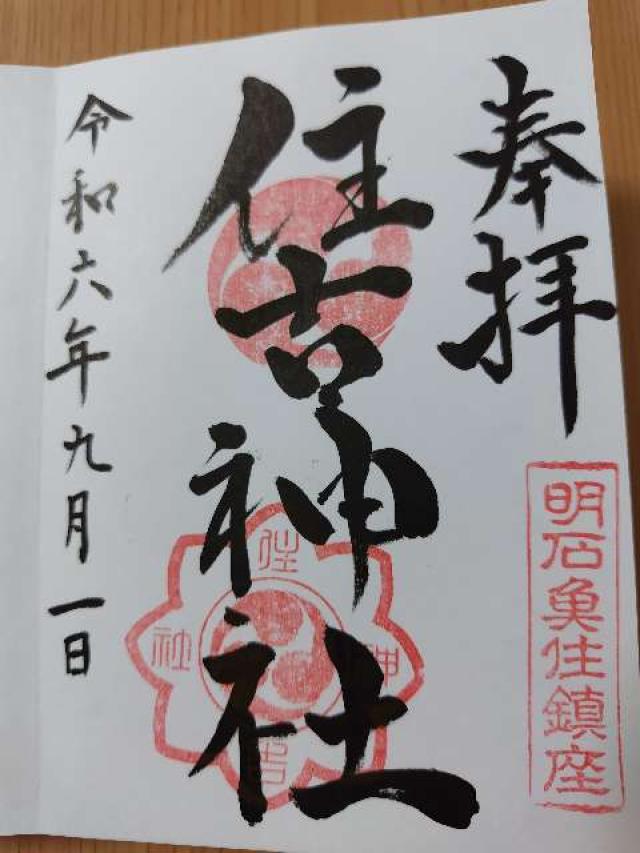 奉拝
明石魚住鎮座
住吉神社
住吉神社
令和六年九月一日